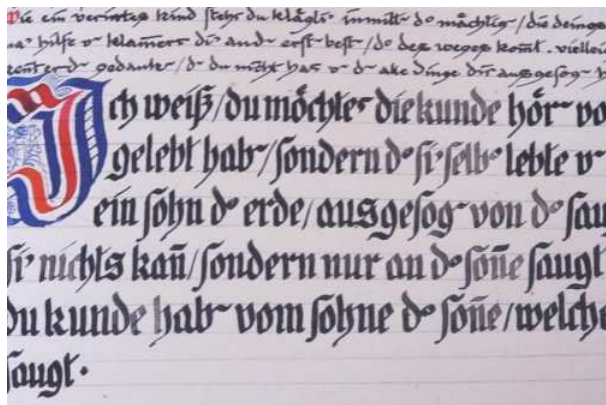 Wie ein verirrtes kind stehs du kläglı inmitt d° mächtig /die deinge
na hilfe v klamers di and erst best /d° des weges komt. viellei
gedanke /d du nicht has v d alle dinge dir ausgesog
Ich weiß/du möchtes die kunde hör vo
gelebt hab/sondern d° si selb lebte v
ein sohn d° erde/ausgesog von d° sau
si nichts kañ/sondern nur an d° soñe saugt
du kunde hab vom sohne d° soñe/welche
saugt.